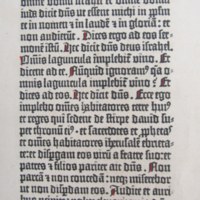 omnē domū israel et omnē domū
dicit dn̄s: ut essent michi in p̄p̄lm
et in nomen et in laudē et in gloriā: et
non audierunt. Dices ergo ad eos ser-
monē istū. Hec dicit dn̄s deus israhel.
Omnis laguncula implebit̄ vino. Et
dicent ad te. Nūquid ignoram⁹ q̄a o-
mnis laguncula implebit̄ vino? Et
dices ad eos. Hec dicit dn̄s. Ecce ego
implebo omnes habitatores terre hui⁹
et reges qui sedent de stirpe david su-
per thronū ei⁹ · et sacerdotes et p̄phetas
et omēs habitatores iherusalē ebrieta-
te: et dispgam eos virū a fratre suo: et
patres et filios pariter ait dn̄s. Non
parcā et non concedam: neq; miserebor
ut non dispdam eos. Audite et auri-